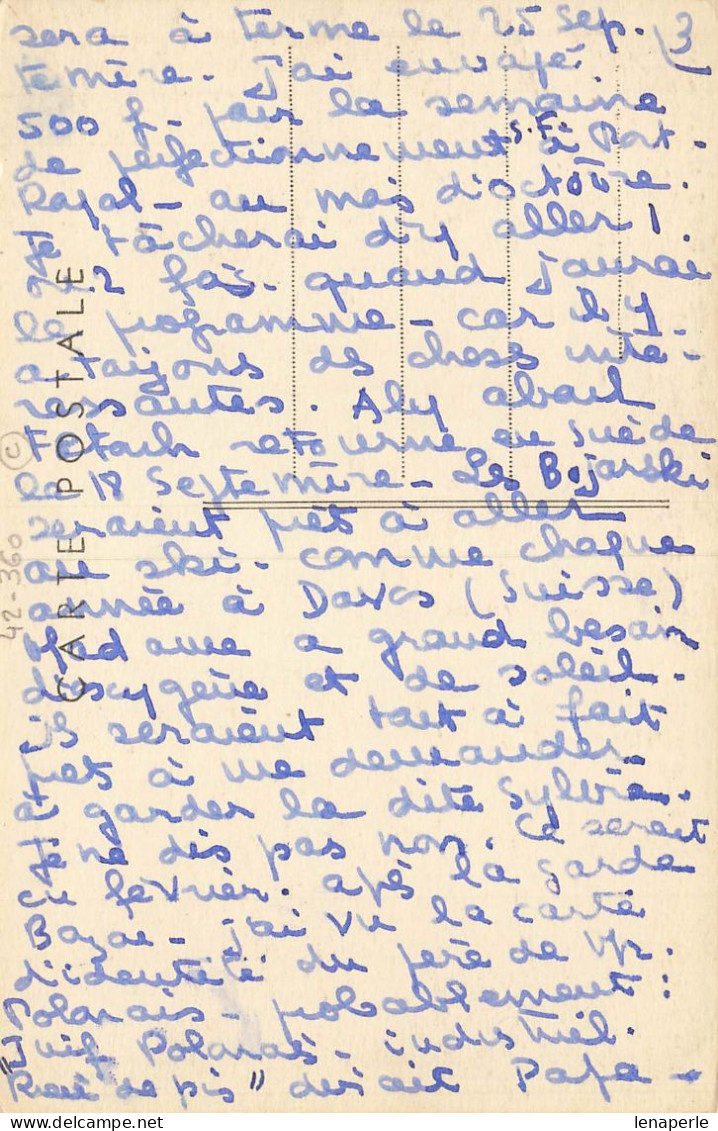 3
sera à terme le 25 sep.
tembre. J'ai envoyé
500 f. pour la semaine
de perfectionnement S.F. à Port-
Royal - au mois d'octobre.
Je tâcherai d'y aller 1
ou 2 fois. quand j'aurai
le programme - car il y
a toujours des choses inté-
ressantes. Aly
retourne en Suède
le 18 Septembre - Les Bojarski
seraient prêts à aller
au ski - comme chaque
année à Davos (Suisse)
Madame a grand besoin
d'oxygène et de soleil.
ils seraient tout à fait
prêts à me demander
à garder la dite Sylvia.
Je ne dis pas non. Ce serait
en février. après la garde
j'ai vu la carte
d'identité du père de Mr.
Polonais - probablement :
Juif Polonais - industriel.
"
" disait Papa -
CARTE POSTALE
C
42-360
lenaperle